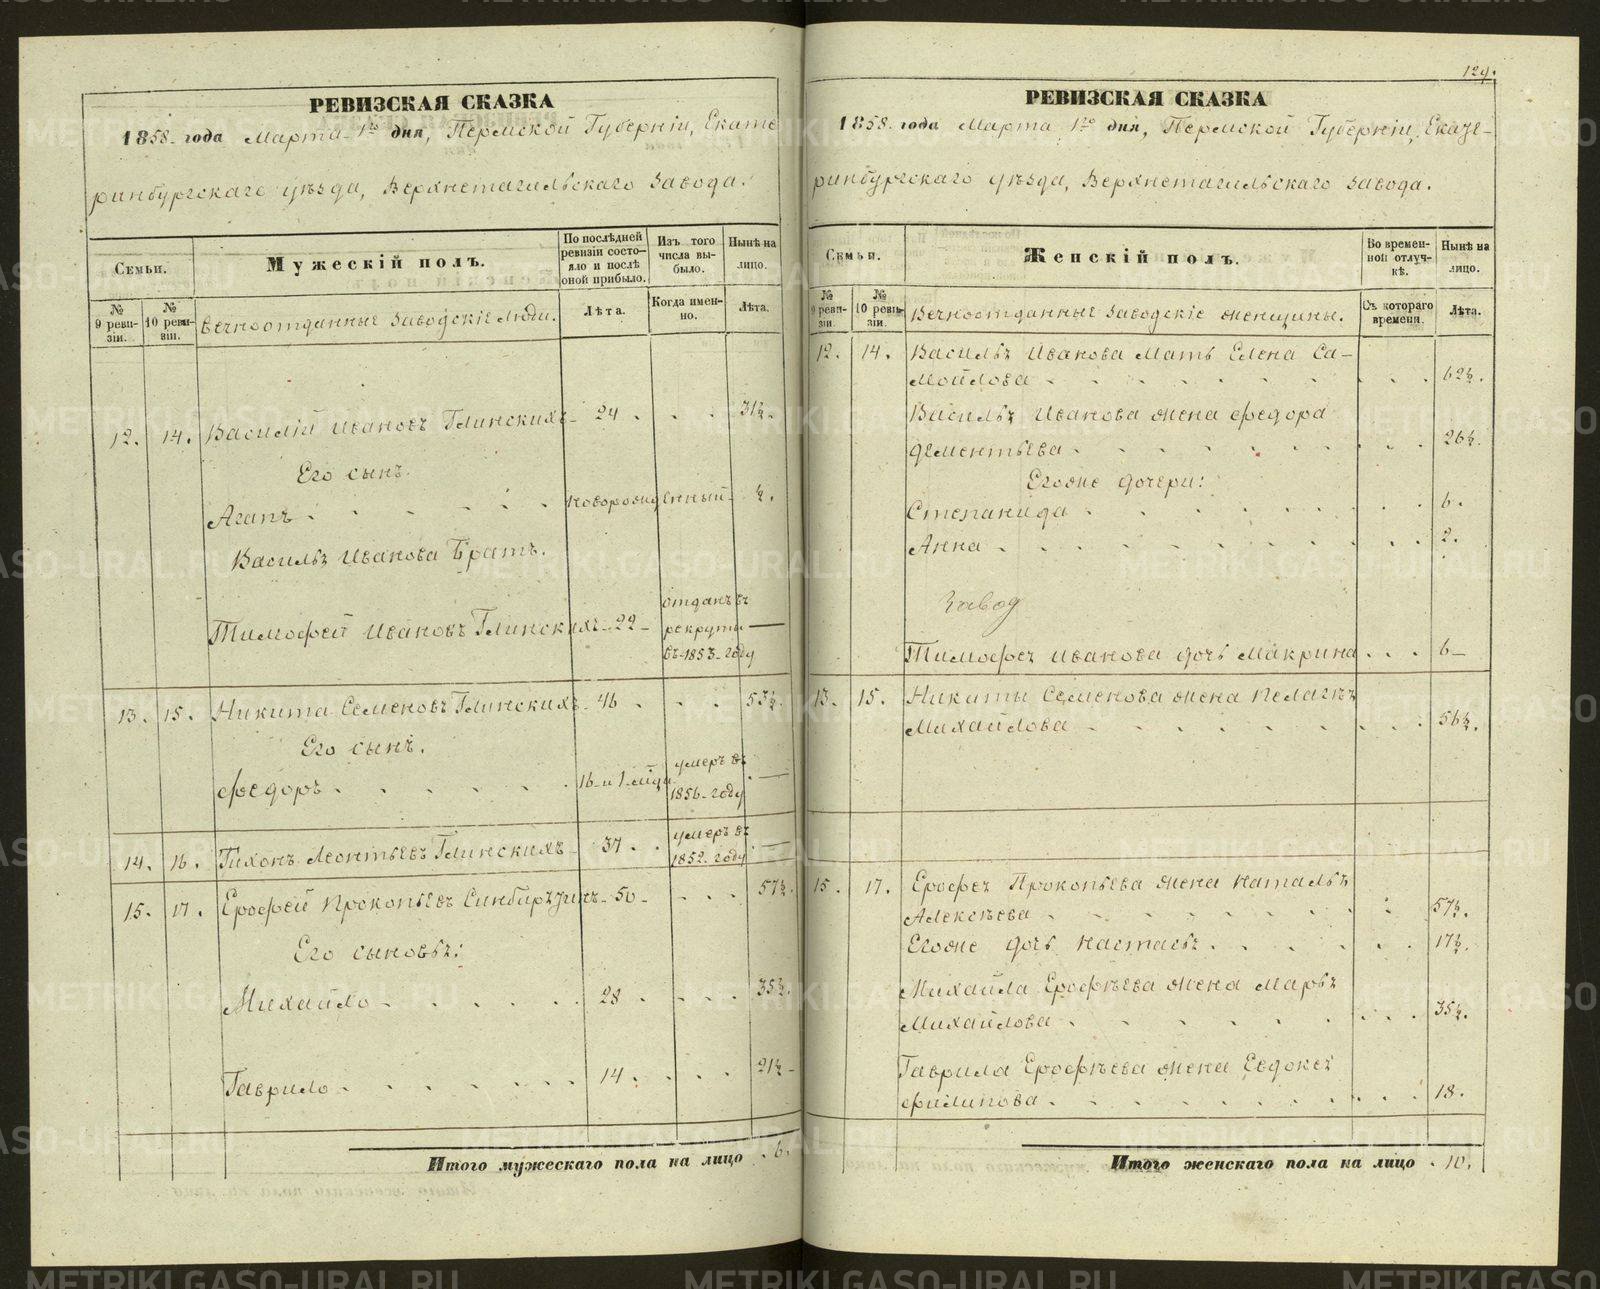 129.
РЕВИЗСКАЯ СКАЗКА
1858. года Марта 1го дня, Пермской Губерніи, Екате
ринбургскаго уѣзда, Верхнетагильскаго завода.
Семьи.
Мужескій полъ.
По послѣдней ревизіи состо-
яло и послѣ оной прибыло.
Изъ того числа вы-
было.
Нынѣ на лицо.
№ 9 реви-
зіи.
№ 10 реви-
зіи.
Вечноотданные заводскіе люди.
Лѣта.
Когда имен-
но.
Лѣта.
12. 14. Василій Ивановъ Глинскихъ 24 . . . 31½.
Его сынъ.
Агапъ . . . . . новорожденный ½.
Василья Иванова Братъ.
Тимофей Ивановъ Глинскихъ 22 отданъ въ рекруты въ 1853 году —
13. 15. Никита Семеновъ Глинскихъ 46 . . . 53½.
Его сынъ.
Федоръ . . . . . 16 и 1 мѣся умеръ въ 1856 году —
14. 16. Тихонъ Леонтьевъ Глинскихъ 37 . . умеръ въ 1852 году —
15. 17. Ерофей Прокопьевъ 50 . . . 57½.
Его сыновья:
Михайло . . . . . 28 . . . . 35½.
Гаврило . . . . . . 14 . . . . 21½
Итого мужескаго пола на лицо . 6.
РЕВИЗСКАЯ СКАЗКА
1858. года Марта 1го дня, Пермской Губерніи, Екате-
ринбургскаго уѣзда, Верхнетагильскаго завода.
Семьи.
Женскій полъ.
Во времен-
ной отлуч-
кѣ.
Нынѣ на лицо.
№ 9 реви-
зіи.
№ 10 реви-
зіи.
Вечноотданные заводскіе женщины.
Съ котораго времени.
Лѣта.
12. 14. Василья Иванова мать Елена Са-
мойлова . . . . . . 62½.
Василья Иванова жена Федора
Дементьева . . . . . . 26½.
Егоже дочери:
Степанида . . . . . . 6.
Анна . . . . . . . 2.
Завод
Тимофея Иванова дочь Макрина . . . 6
13. 15. Никиты Семенова жена Пелагея
Михайлова . . . . . . 56½.
15. 17. Ерофея Прокопьева жена Наталья
Алексѣева . . . . . . 57½.
Егоже дочь Настасья . . . . 17½.
Михайла Ерофѣева жена Марья
Михайлова . . . . . . 35½.
Гаврила Ерофѣева жена Евдокея
Филипова . . . . . . 18.
Итого женскаго пола на лицо . 10.
METRIKI.GASO-URAL.RU